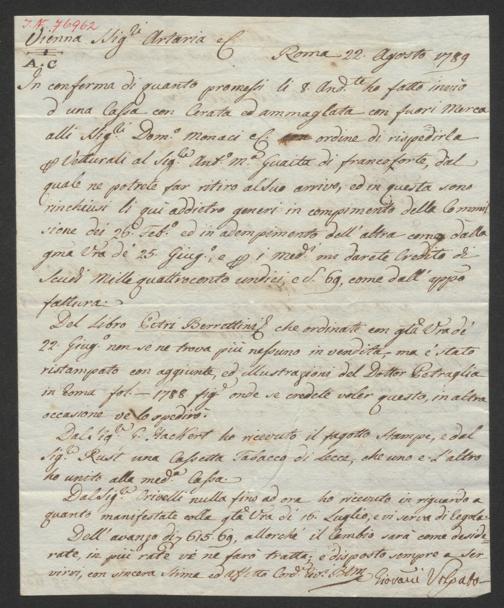 I. N. 76962
Vienna Sigri Artaria e C.
Roma 22. Agosto 1789
A. C
In conforma di quanto promessi li 8. Andte ho fatto invio
d una Cassa con Cerata ed ammagliata con fuori Merca
alli Sigri Domo Monaci e C. ordine di rispedirla
Vetturali al Sigre Anto Ma Guaita di francoforte, dal
quale ne potrete far ritiro al Suo arrivo, ed in questa sono
rinchiusi li qui addietro generi in compimento della Commis
sione dei 26. Febo ed in adempimento dell'altra come dalla
gma Vra de' 25. Giugo, e i Medmi mi darete Credito di
Scudi Mille quattrocento undici, e 69, come dall'appo
fattura.
Del Libro Petri Berrettini che ordinati con gla Vra de'
22 Giugo non se ne trova più nessuno in vendita, ma è stato
ristampato con aggiunte, ed illustrazioni del Dottor Petraglia
in Roma fol. - 1788 figo onde se credete voler questo, in altra
occasione ve lo spedirò.
Dal Sigre G. Hackert ho ricevuto il fagotto Stampe, e del
Sigre Rust una Cassetta Tabacco di Lecce, che uno e l'altro
ho unito alla meda Cassa.
Dal Sigre Trivelli nulla fino ad ora ho ricevuto in riguardo a
quanto manifestate colla gla Vra di 16. Luglio, e vi serva di Regola.
Dell'avanzo di 7615.69, allorchè il Cambio sarà come deside
rate, in più rate ve ne farò tratta, e disposto sempre a Ser
virvi, con sincera Stima ed affetto
Giovanni Volpato